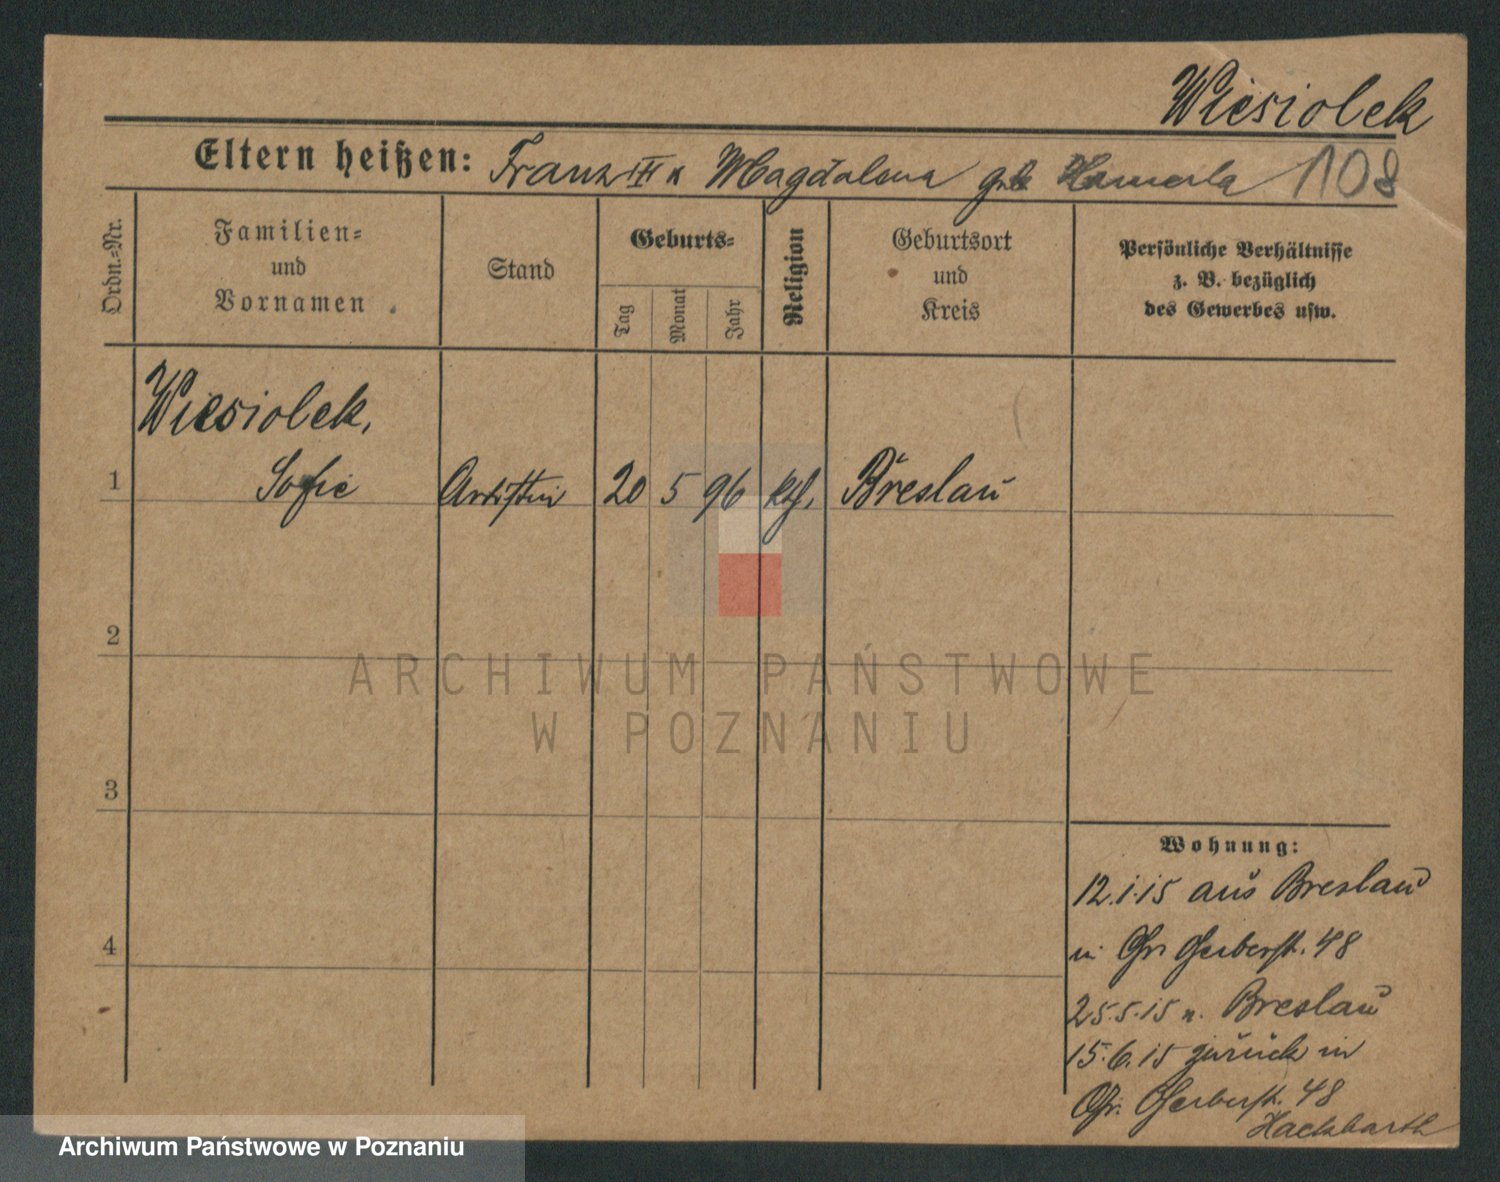 Wiesiolek
Eltern heißen: Franz III u Magdalena geb Hamerla 108
Ordn.-Nr.
Familien-
und
Vornamen
Stand
Geburts-
Tag
Monat
Jahr
Religion
Geburtsort
und
Kreis
Persönliche Verhältnisse
z. B. bezüglich
des Gewerbes usw.
Wiesiolek,
1 Sofie Artistin 20 5 96 kth. Breslau
2
ARCHIWUM PAŃSTWOWE
W POZNANIU
3
Wohnung:
12.1.15 aus Breslau
4
in Gr. Gerberstr. 48
25.5.15 n. Breslau
15.6.15 zurück in
Gr. Gerberstr. 48
Hackbarth
Archiwum Państwowe w Poznaniu